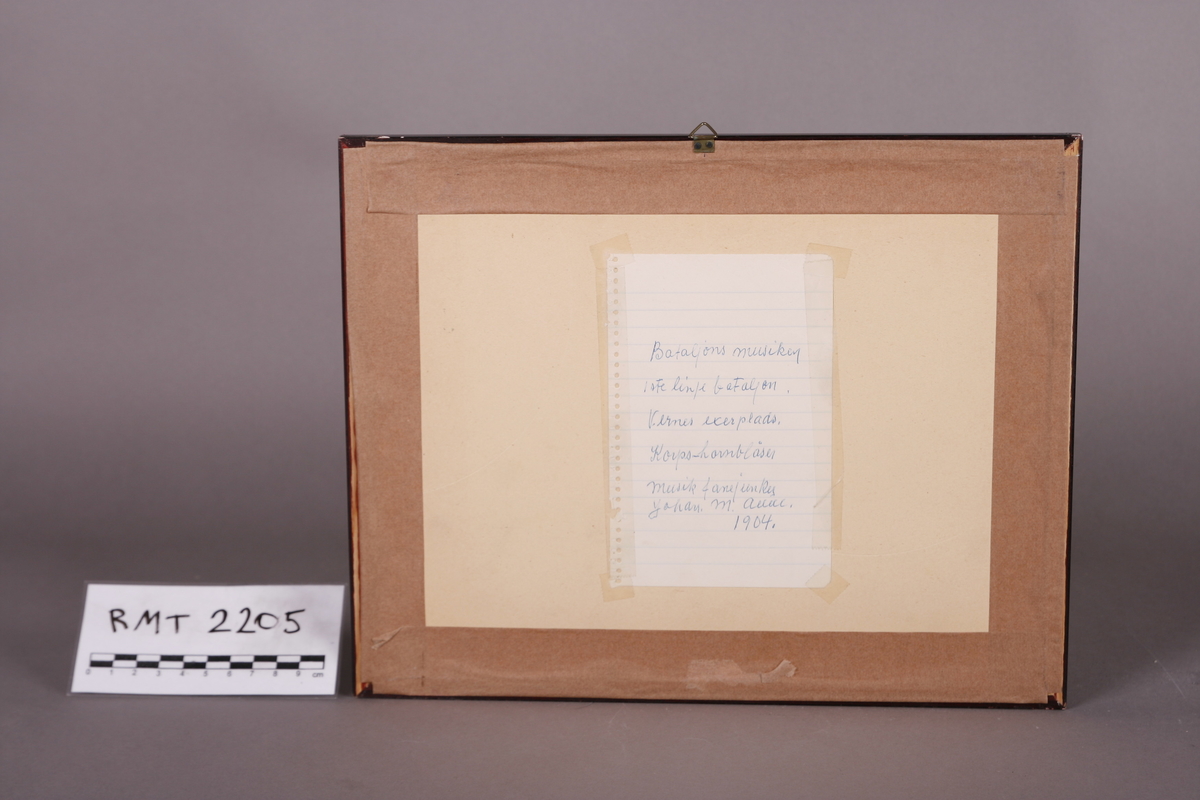 Bataljons musiken
1ste linje bataljon.
Værnes exerplads.
Korps-hornblåser
Musik fanejunker
Johan. M. Aune.
1904.
RMT 2205
0 1 2 3 4 5 6 7 8 9 cm